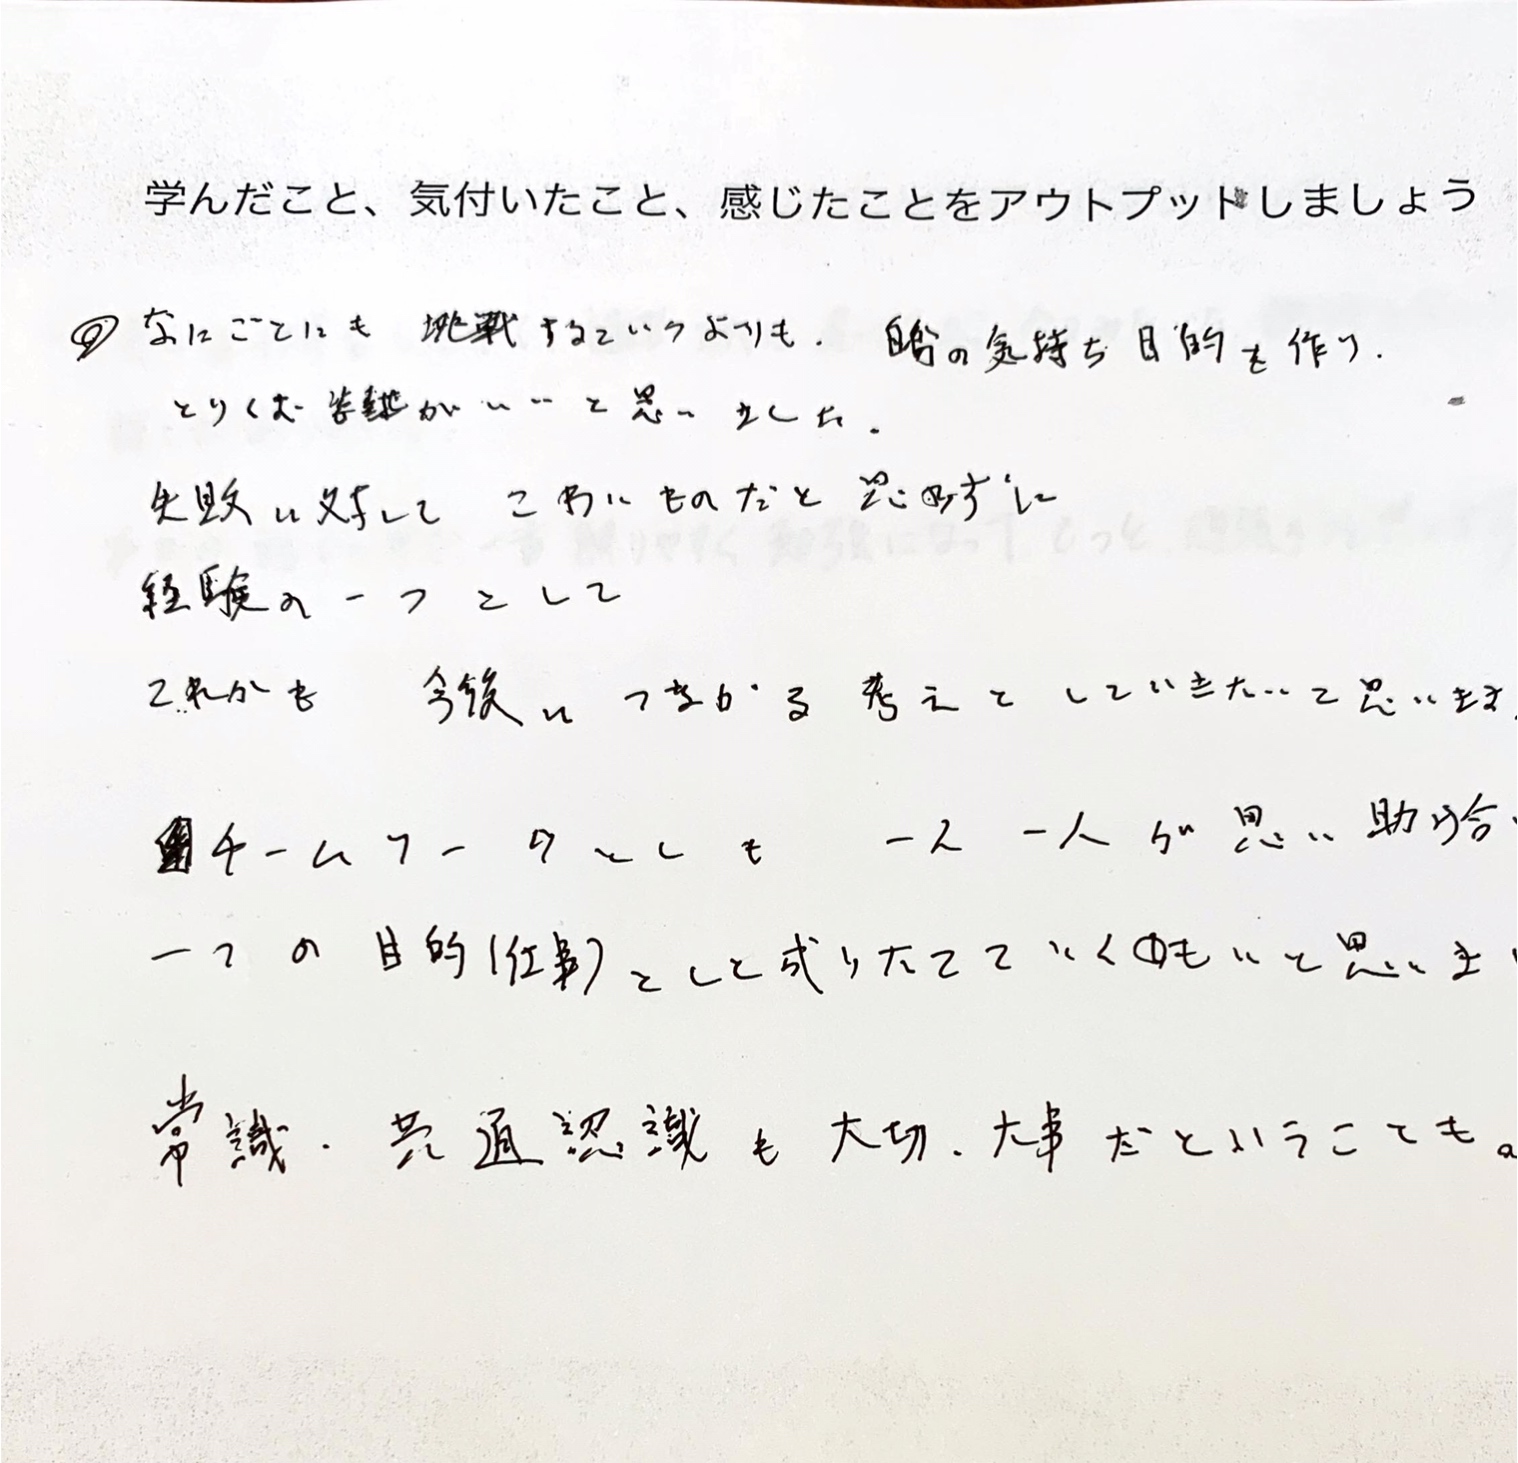 学んだこと、気付いたこと、感じたことをアウトプットしましょう
なにごとにも 挑戦するというよりも. 自分の気持ち 目的を作り.
とりくむ がいいと思いました.
失敗に対して こわいものだと思わずに
経験の一つとして
これからも 今後につながる考えとしていきたいと思います.
チームワークとしも 一人一人が思い助け合い
一つの目的(仕事)としと成りたてていくのもいと思いま
常識.共通認識も大切.大事だということも。